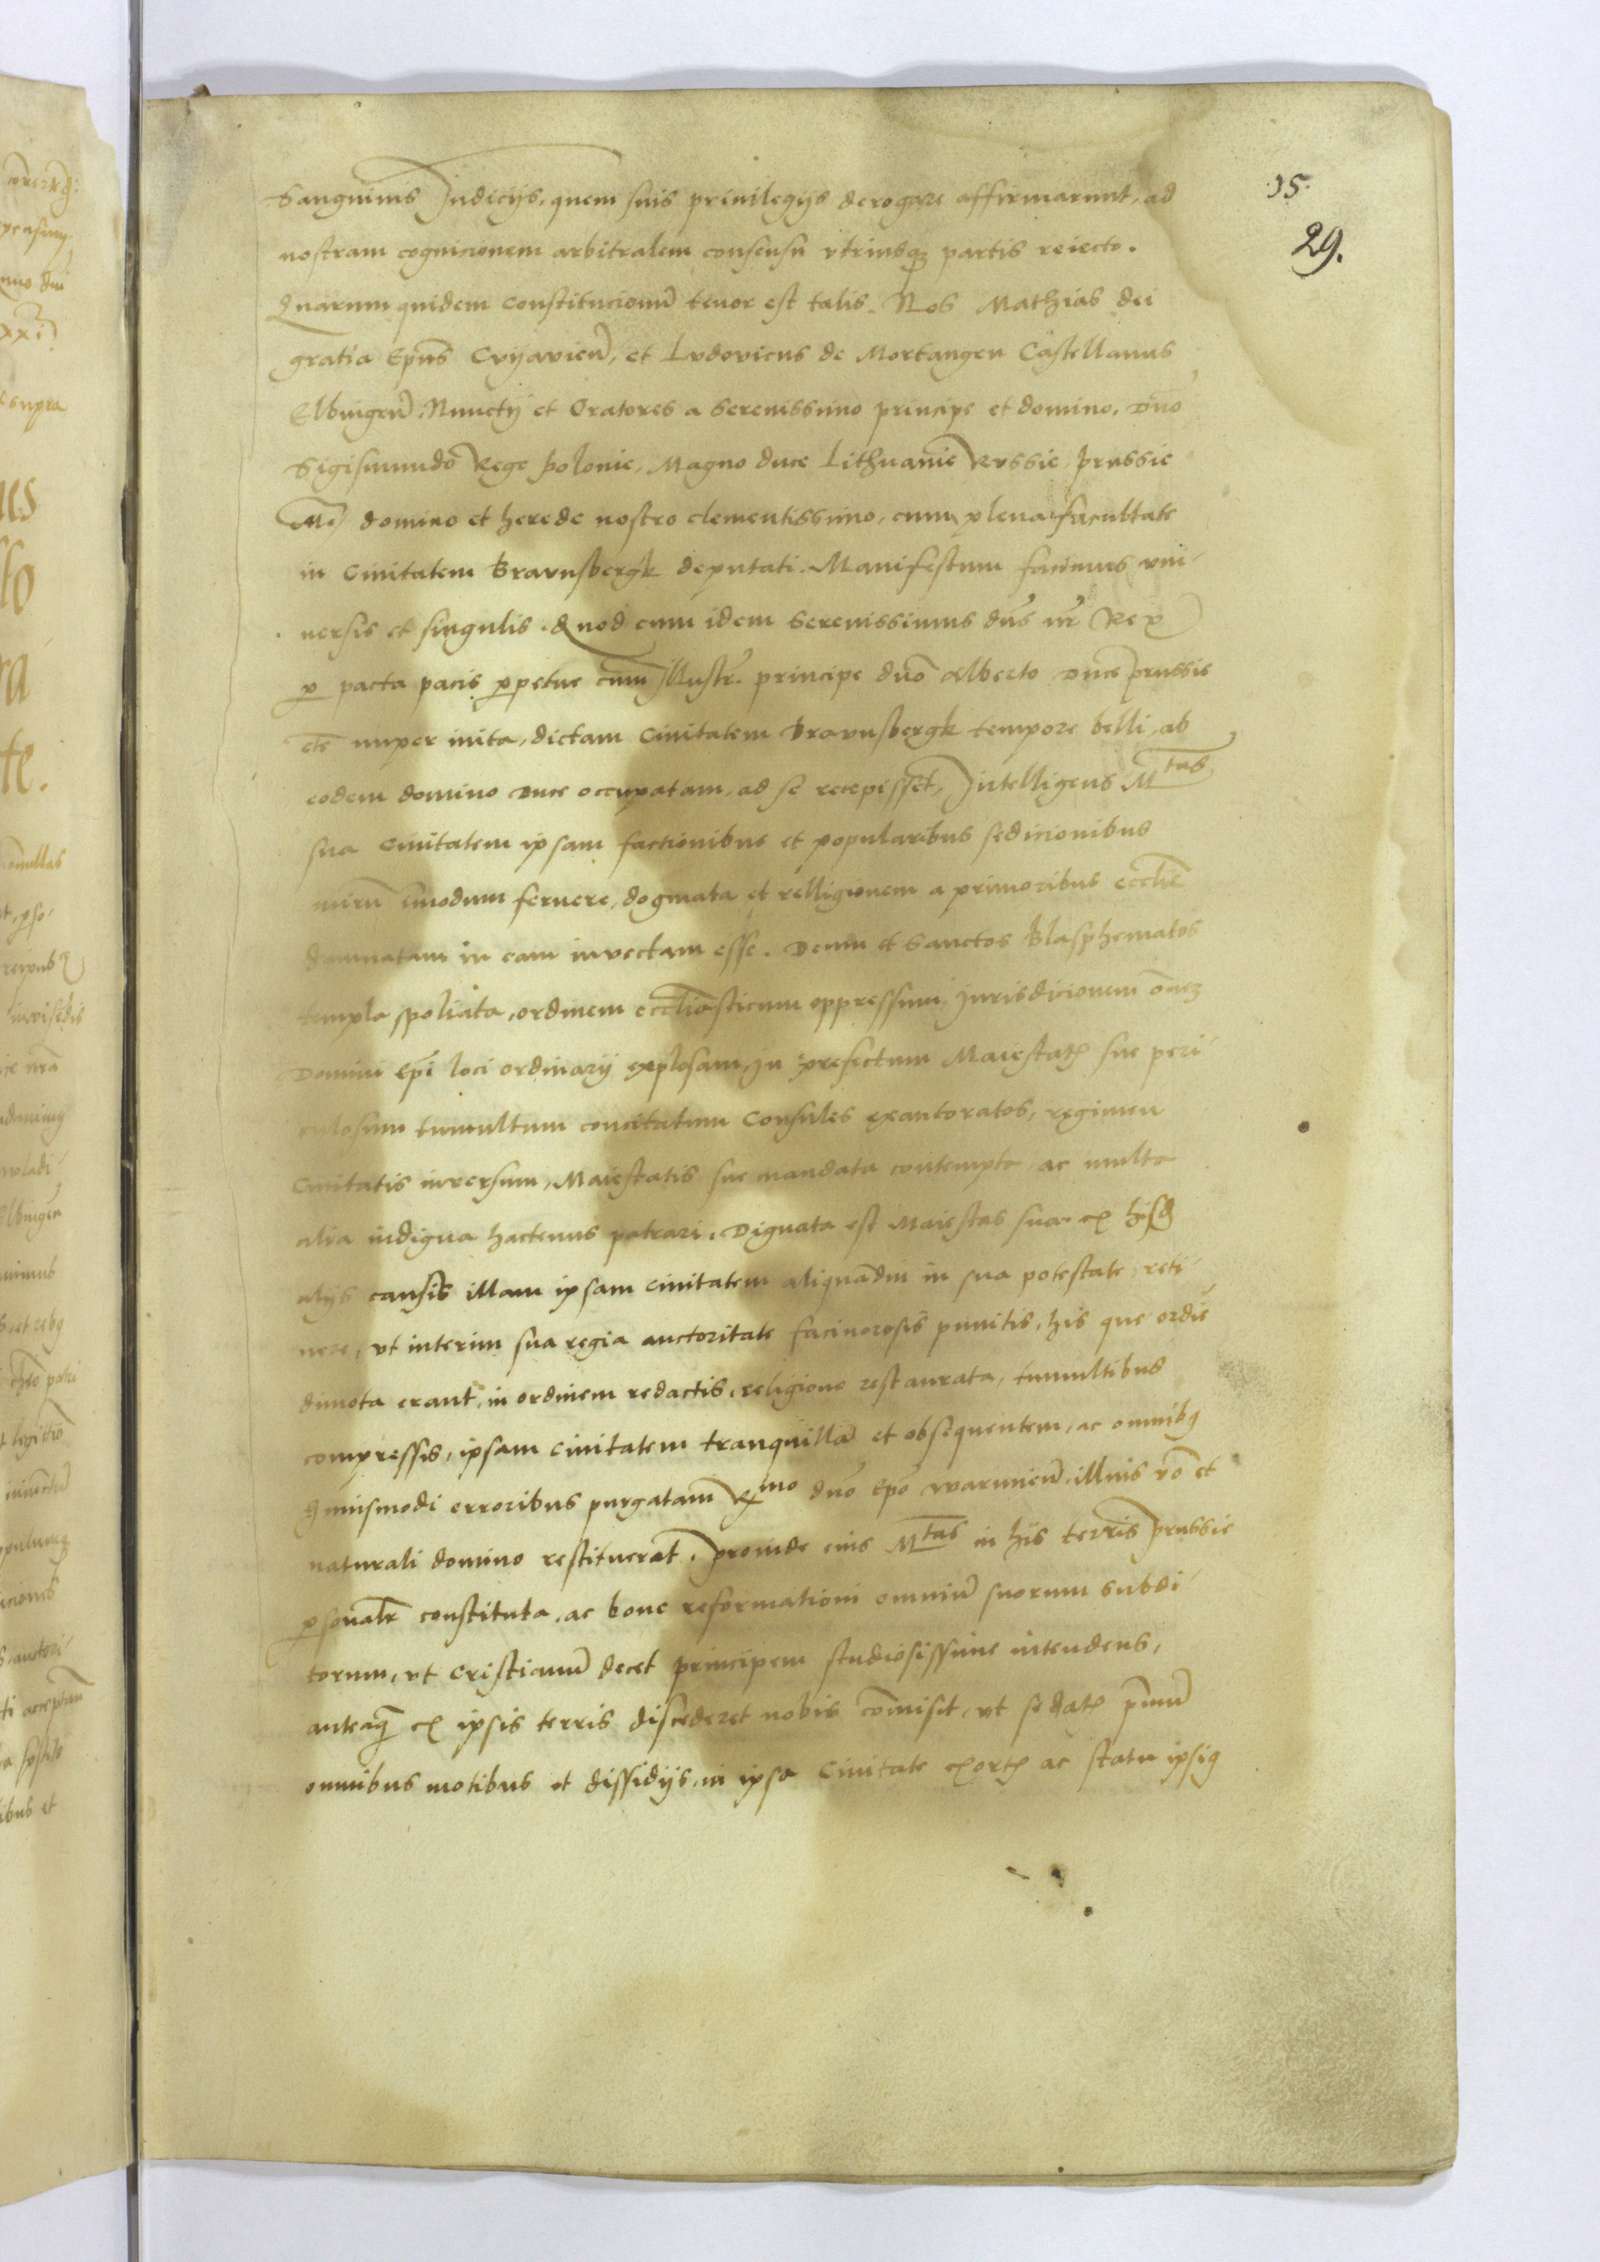 .15.
29.
Sanguinis Judicijs, quem suis priuilegijs derogare affirmarunt, ad
nostram cognicionem arbitralem consensu vtriusq3 partis reiecto.
Quarum quidem constitucionũ tenor est talis. Nos Mathias dei
gratia Epũs Cvijavieñ, et Lvdovicus de Mortangen Castellanus
Elbingeñ, Nunctij et Oratores a Serenissimo principe et domino, Dño
Sigismundo Rege Polonie, Magno duce Lithvanie Rvssie, Prussie
domino et herede nostro clementissimo, cum plena facultate
in Ciuitatem Bravnsbergk deputati. Manifestum facimus vni-
uersis et singulis. Quod cum idem Serenissimus dñs nr̃ Rex
p pacta pacis ppetue cum Illustr. principe dño Alberto Duce prussie
etc̃ nuper inita, dictam Ciuitatem Bravnsbergk tempore belli, ab
eodem domino Duce occupatam, ad se recepisset, Intelligens Mtas
sua Ciuitatem ipsam factionibus et popularibus sedicionibus
mirũ inmodum feruere, dogmata et relligionem a primoribus ecclie
damnatam in eam invectam esse. Deum et Sanctos Blasphematos
templa spoliata, ordinem eccliasticum oppressum, Jurisdicionem om̃em
Domini Epi loci ordinarij explosam, In prefectum Maiestatis sue peri-
culosum tumultum concitatum Consules exautoratos, regimen
Ciuitatis inversum, Maiestatis sue mandata contempta ac multa
alia indigna hactenus patrari. Dignata est Maiestas sua ex
alijs causis illam ipsam ciuitatem aliquãdiu in sua potestate reti-
nere, vt interim sua regia auctoritate facinorosis punitis, his que ordie
dimota erant, in ordinem redactis, religione restaurata, tumultibus
compressis, ipsam ciuitatem tranquillã et obsequentem, ac omnibq
huiusmodi erroribus purgatam Rmo dño Epo Warmieñ, illius vo et
naturali domino restituerat. Proinde eius Mtas in his terris Prussie
psonalr constituta, ac bone reformationi omniũ suorum subdi-
torum, vt Cristianũ decet principem studiosissime intendens,
anteaq̃ ex ipsis terris discederet nobis com̃isit, vt sedatis primũ
omnibus motibus et dissidijs, in ipsa Ciuitate exortis ac statu ipsiq